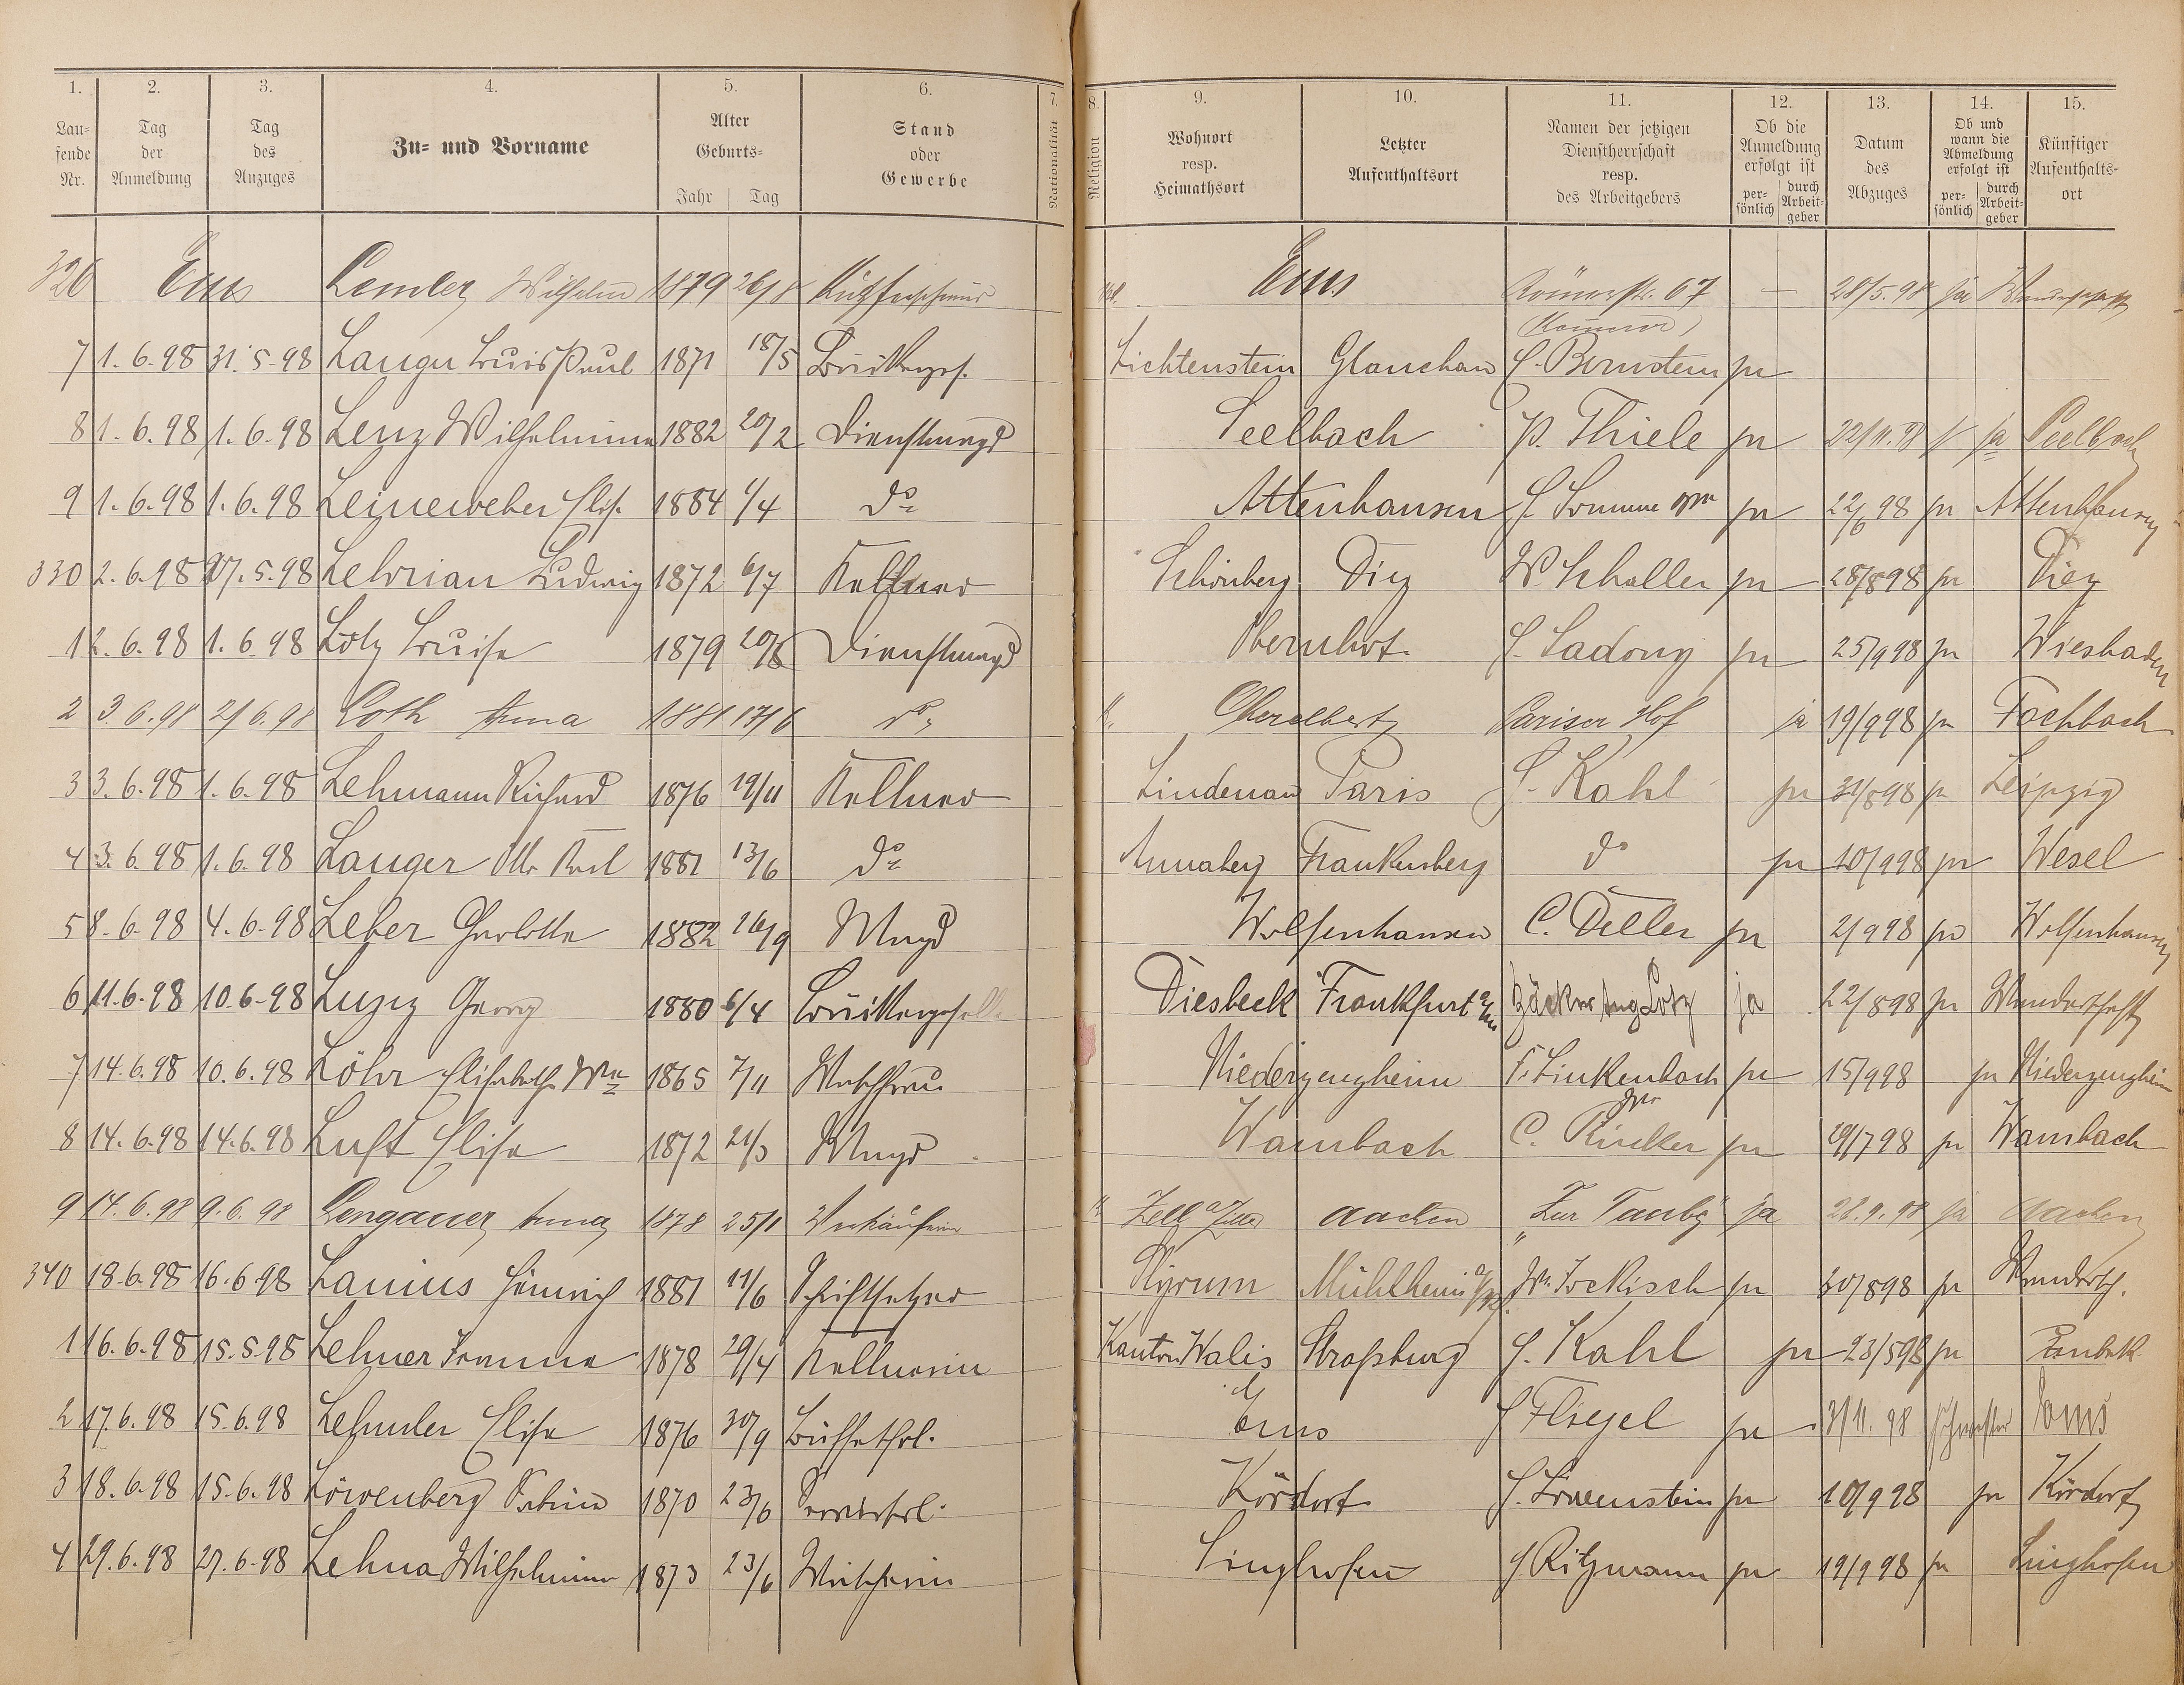 1. 2. 3. 4. 5. 6. 7. 8. 9. 10. 11. 12. 13. 14. 15.
Laufende Nr. Tag der Anmeldung Tag des Anzuges Zu- und Vorname Alter Geburts- Jahr Tag Stand oder Gewerbe Nationalität Religion Wohnort resp. Heimathsort Letzter Aufenthaltsort Namen der jetzigen Dienstherrschaft resp. des Arbeitgebers Ob die Anmeldung erfolgt ist persönlich durch Arbeitgeber Datum des Abzuges Ob und wann die Abmeldung erfolgt ist persönlich durch Arbeitgeber Künftiger Aufenthaltsort
326 Ems Lemler Wilhelm 1879 26/8 Ems Römerstr. 67 — 28/5.98 ja
7 1.6.98 31.5.98 Langer Louis Paul 1871 18/5 Lichtenstein Glauchau H. Bernstein ja
8 1.6.98 1.6.98 Lenz Wilhelmine 1882 20/2 Dienstmagd Seelbach P. Thiele ja 22/11.98 ja Seelbach
9 1.6.98 1.6.98 Leineweber Elis. 1884 1/4 do Attenhausen H. Sommer ja 22/6 98 ja Attenhausen
330 2.6.98 27.5.98 Lehrian Ludwig 1872 6/7 Kellner Schönberg Diez W Schaller ja 28/8 98 ja Diez
1 2.6.98 1.6.98 Lotz Luise 1879 20/8 Dienstmagd Obernhof H. Sadony ja 25/9 98 ja Wiesbaden
2 3.6.98 2/6.98 Loth Anna 1881 17/6 do Oberelbert Pariser Hof ja 19/9 98 ja Fachbach
3 3.6.98 1.6.98 Lehmann Richard 1876 19/11 Kellner Lindenau Paris H. Kahl ja 31/8 98 ja Leipzig
4 3.6.98 1.6.98 Langer Otto Karl 1881 13/6 do Annaberg Frankenberg do ja 10/9 98 ja Wesel
5 8.6.98 4.6.98 Leber Charlotte 1882 26/9 Magd Wolfenhausen C. Deller ja 2/9 98 ja Wolfenhausen
6 11.6.98 10.6.98 Georg 1880 6/4 Diesbeck Frankfurt a/m Bäcker Aug Lotz ja 22/8 98 ja Wanderschaft
7 14.6.98 10.6.98 Löhr Elisabethe Wwe 1865 7/11 Waschfrau Niederzeugheim F. Linkenbach ja 15/9 98 ja Niederzeugheim
8 14.6.98 14.6.98 Luft Elise 1872 21/3 Magd Wambach C. ja 29/7 98 ja Wambach
9 14.6.98 9.6.98 Lengauer Anna 1878 25/1 Verkäuferin Zell a/Ziller Aachen "Zur Taube" ja 28.9.98 ja Aachen
340 18.6.98 16.6.98 Lanius Heinrich 1881 11/6 Schriftsetzer Mühlheim a/Rh. ja 30/8 98 ja Wandersch.
1 16.6.98 15.5.98 Lehner Johanna 1878 29/4 Kellnerin Kanton Walis Straßburg H. Kahl ja 23/5 98 ja
2 17.6.98 15.6.98 Lehmler Elise 1876 30/9 Büffetfrl. Ems H Flegel ja 3/11.98 Schwester Ems
3 18.6.98 15.6.98 Löwenberg 1870 23/6 Kördorf H. Löwenstein ja 10/9 98 ja Kördorf
4 29.6.98 27.6.98 Lehna Wilhelmine 1873 23/6 Singhofen H Ritzmann ja 19/9 98 ja Singhofen